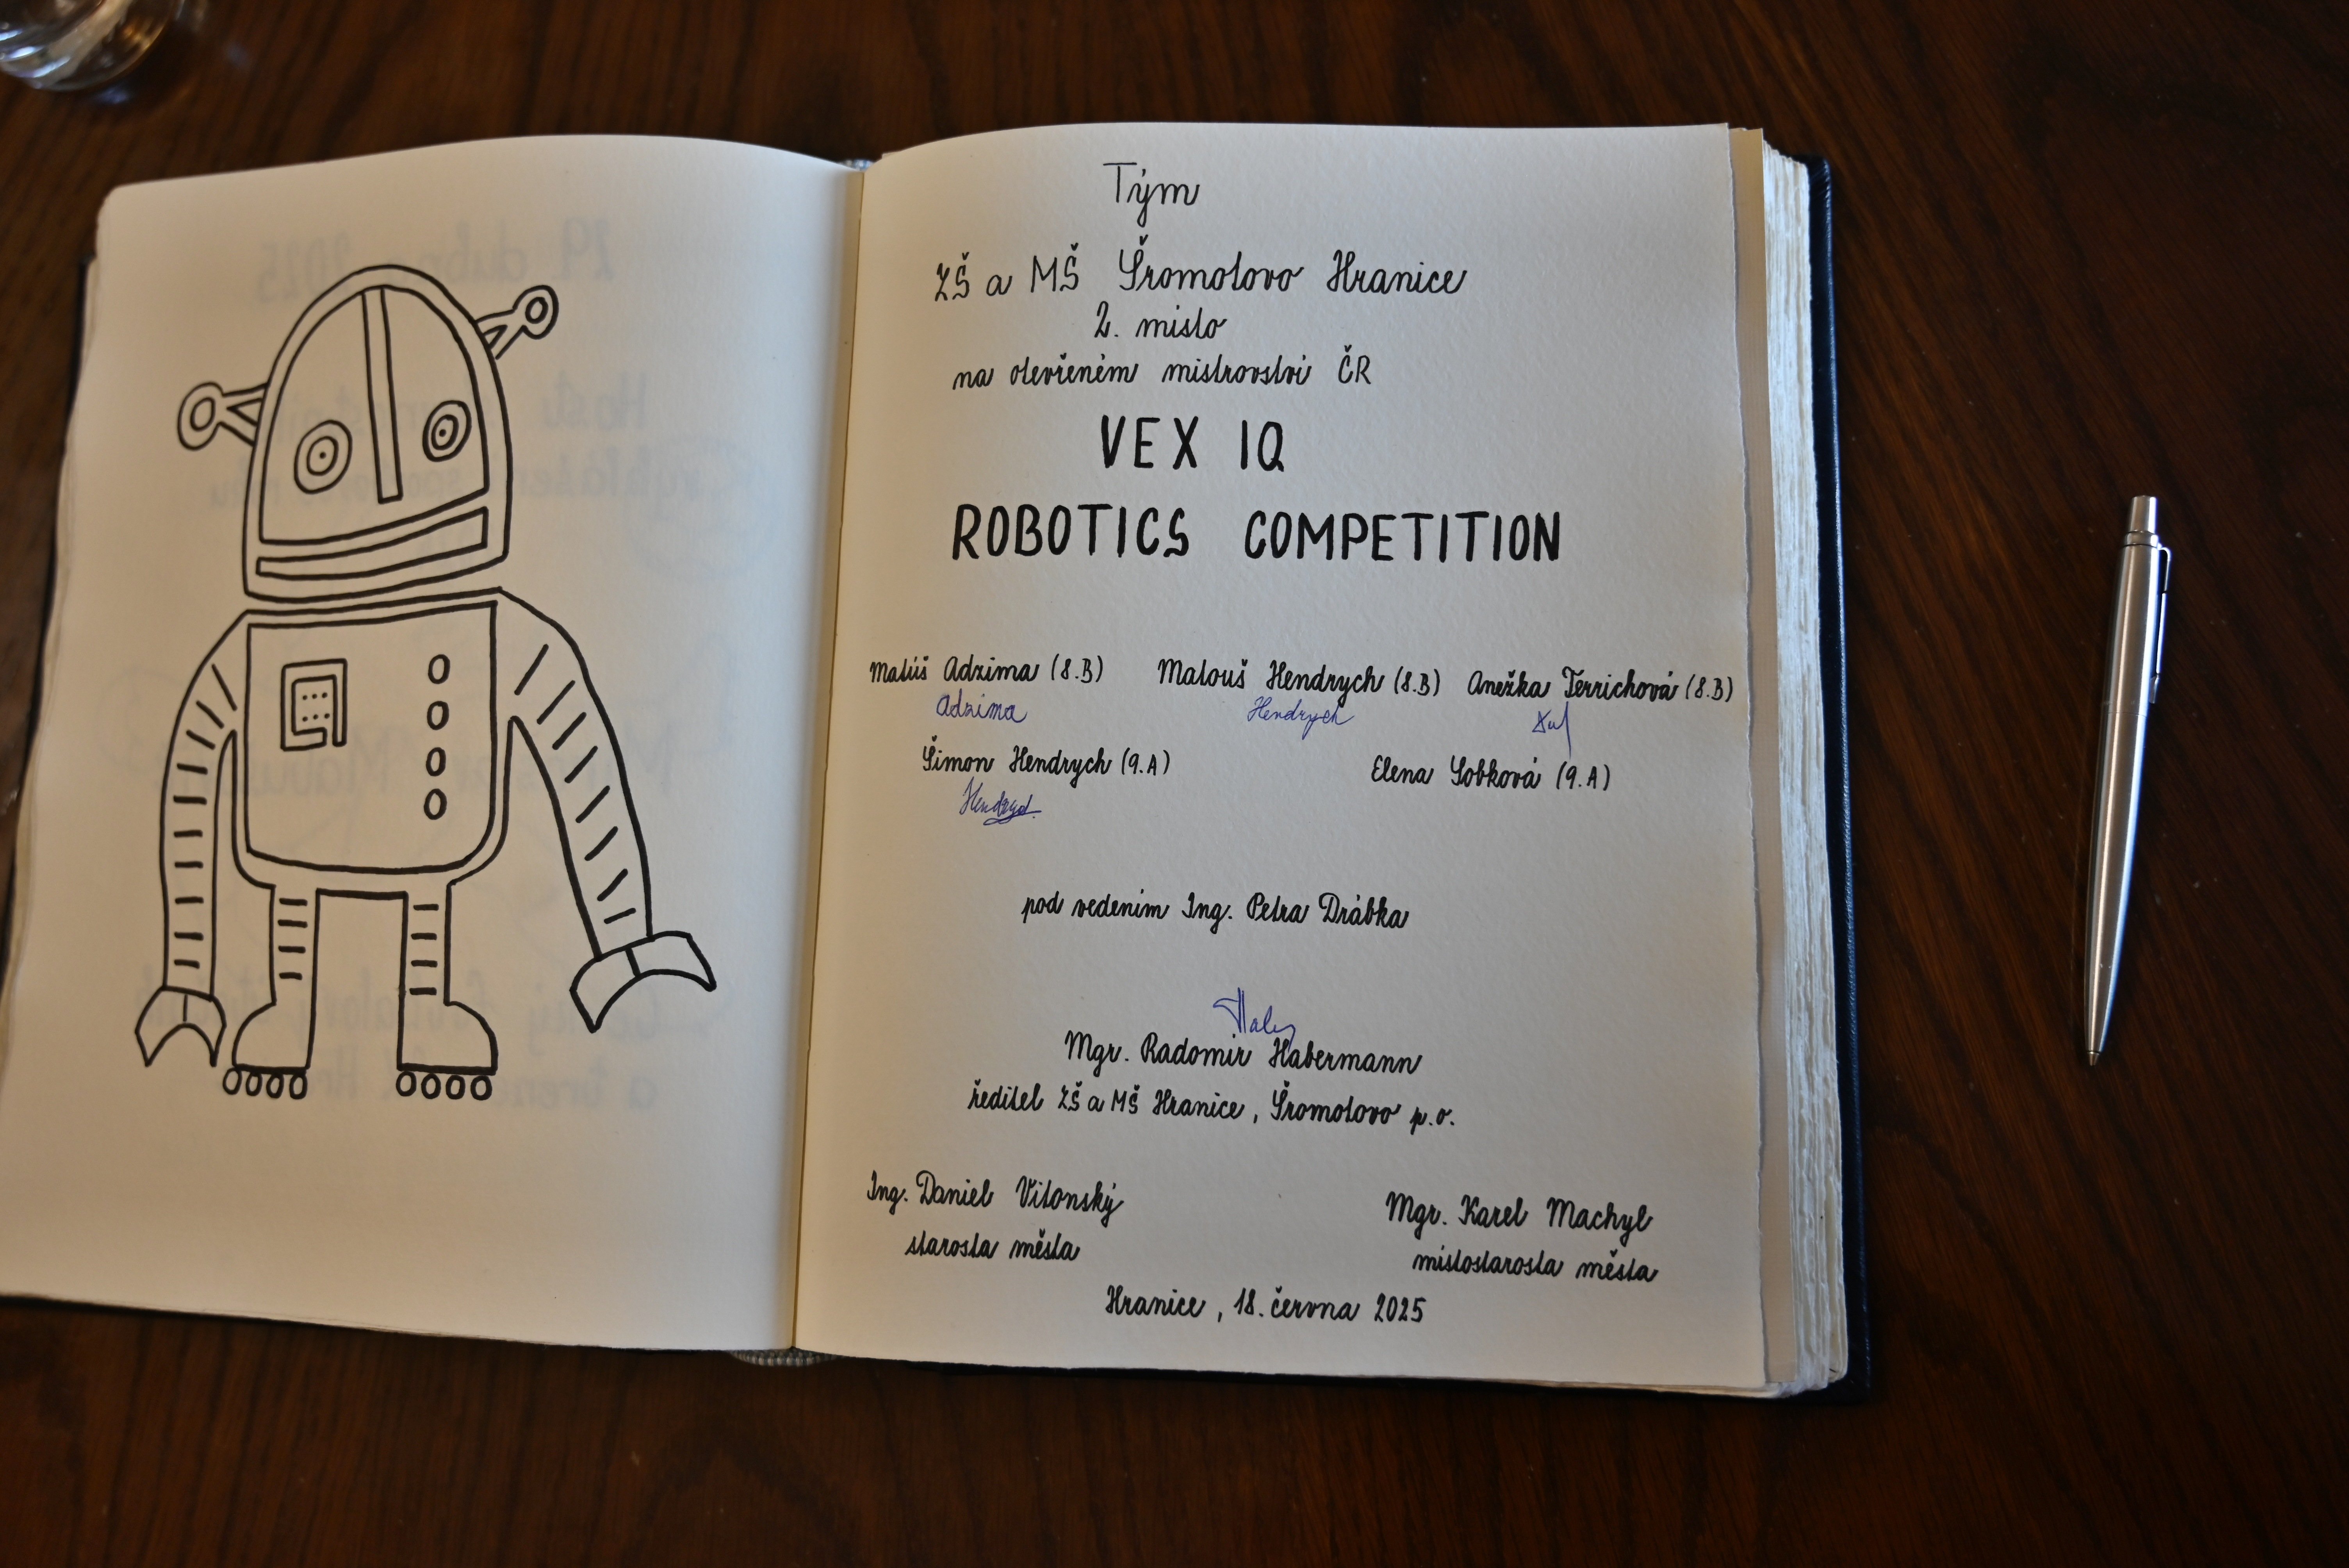 Tým
ZŠ a MŠ Šromotovo Hranice
2. místo
na otevřeném mistrovství ČR
VEX IQ
ROBOTICS COMPETITION
Matúš Adzima (8.B) Matouš Hendrych (8.B) Anežka Terrichová (8.B)
Adzima Hendrych
Šimon Hendrych (9.A) Elena Sobková (9.A)
Hendrych
pod vedením Ing. Petra Drábka
Mgr. Radomír Habermann
ředitel ZŠ a MŠ Hranice, Šromotovo p.o.
Ing. Daniel Vitonský Mgr. Karel Machyl
starosta města místostarosta města
Hranice, 18. června 2025